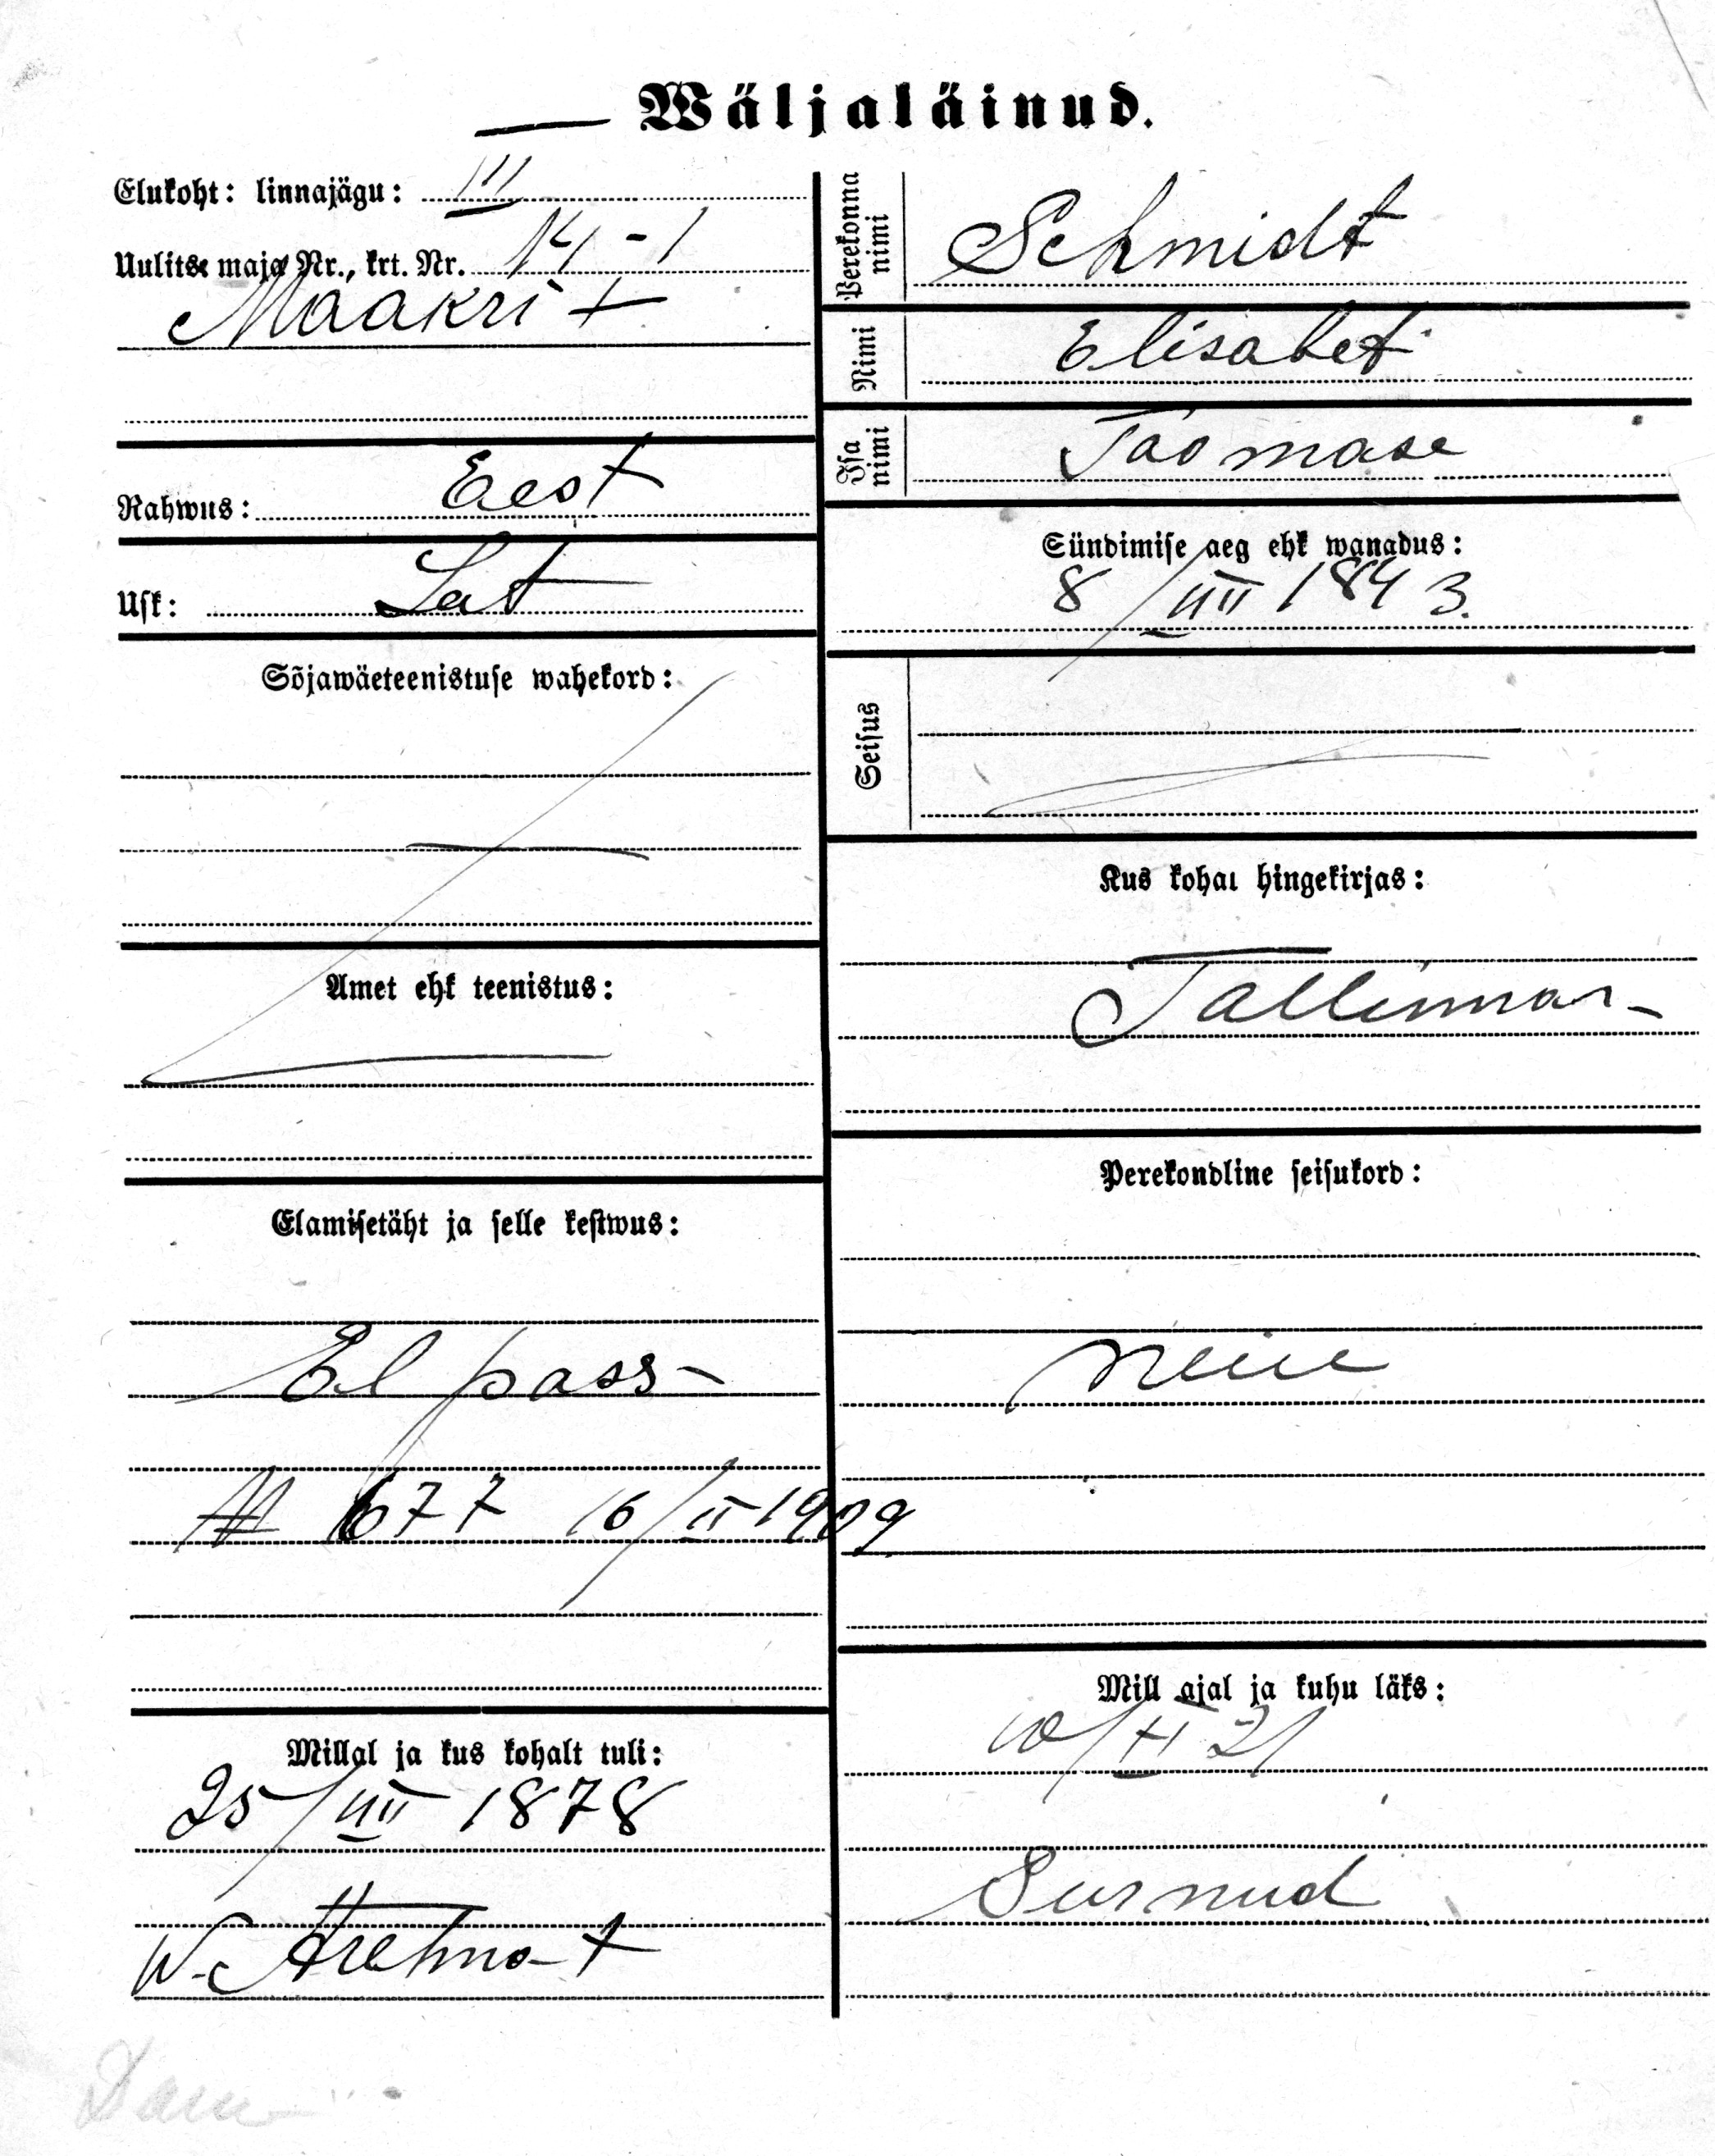 Wäljaläinud.
Elukoht: linnajägu: III
Uulitse maja Nr., krt. Nr. 14-1
Maakri t
Rahwus: Eest
Usk: Lut
Sõjawäeteenistuse wahekord:
Amet ehk teenistus:
Elamisetäht ja selle kestwus:
El pass
№ 677 16/II 1909
Millal ja kus kohalt tuli:
25/VIII 1878
Perekonna nimi Schmidt
Nimi Elisabet
Isa nimi Toomase
Sündimise aeg ehk wanadus:
8/VIII 1843.
Seisus
Kus kohal hingekirjas:
Tallinnas
Perekondline seisukord:
neiu
Mill ajal ja kuhu läks:
10/XI 21
Surnud